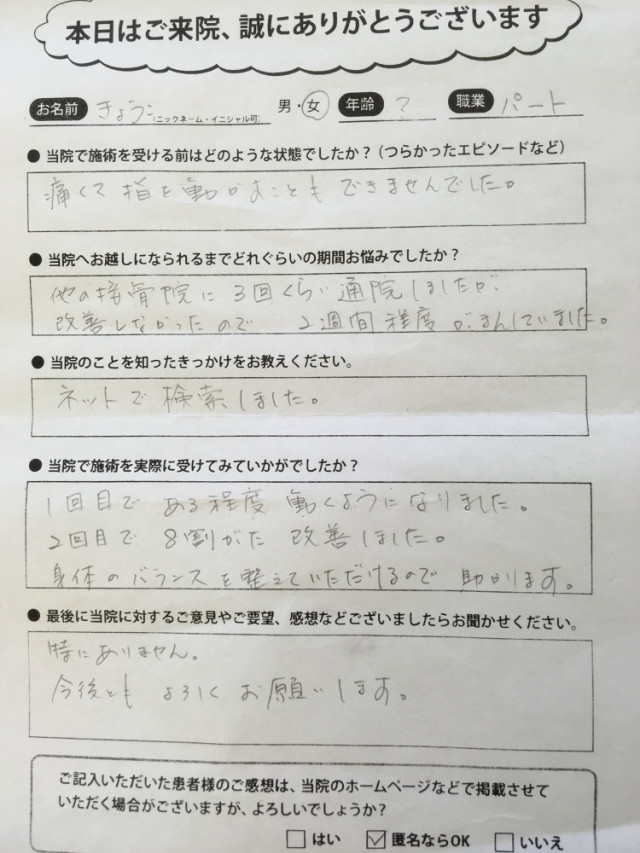 本日はご来院、誠にありがとうございます
お名前 きょうこ (ニックネーム・イニシャル可) 男・女 年齢 ? 職業 パート
● 当院で施術を受ける前はどのような状態でしたか？（つらかったエピソードなど）
痛くて指を動かすことも できませんでした。
● 当院へお越しになられるまでどれぐらいの期間お悩みでしたか？
他の接骨院に 3回くらい通院しましたが
改善しなかったので 2週間程度 がまんしていました。
● 当院のことを知ったきっかけをお教えください。
ネットで検索しました。
● 当院で施術を実際に受けてみていかがでしたか？
1回目で ある程度 動くようになりました。
2回目で 8割がた 改善しました。
身体のバランスを整えていただけるので 助かります。
● 最後に当院に対するご意見やご要望、感想などございましたらお聞かせください。
特にありません。
今後とも よろしく お願いします。
ご記入いただいた患者様のご感想は、当院のホームページなどで掲載させて
いただく場合がございますが、よろしいでしょうか？
□ はい ☑ 匿名ならOK □ いいえ